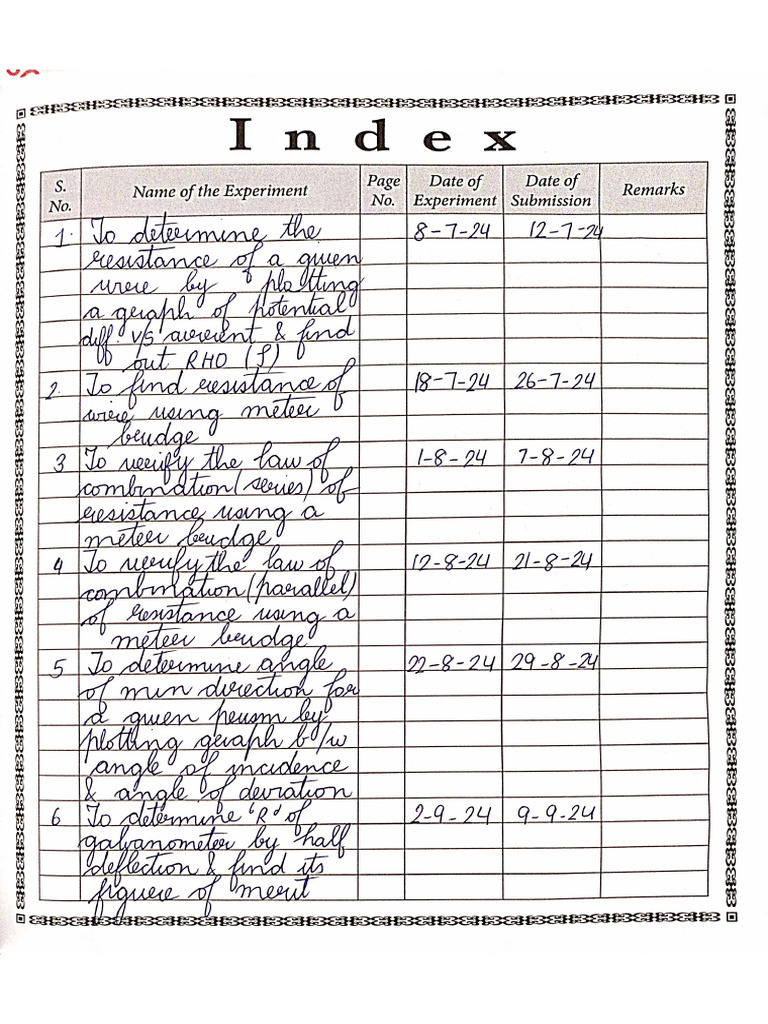 Index
S. No. Name of the Experiment Page No. Date of Experiment Date of Submission Remarks
1. To determine the 8-7-24 12-7-24
resistance of a given
wire by plotting
a graph of potential
diff. v/s current & find
out RHO (ρ)
2. To find resistance of 18-7-24 26-7-24
wire using meter
bridge
3 To verify the law of 1-8-24 7-8-24
combination(series) of
resistance using a
meter bridge
4 To verify the law of 12-8-24 21-8-24
combination(parallel)
of resistance using a
meter bridge
5 To determine angle 22-8-24 29-8-24
of min direction for
a given prism by
plotting graph b/w
angle of incidence
& angle of deviation
6 To determine 'R' of 2-9-24 9-9-24
galvanometer by half
deflection & find its
figure of merit